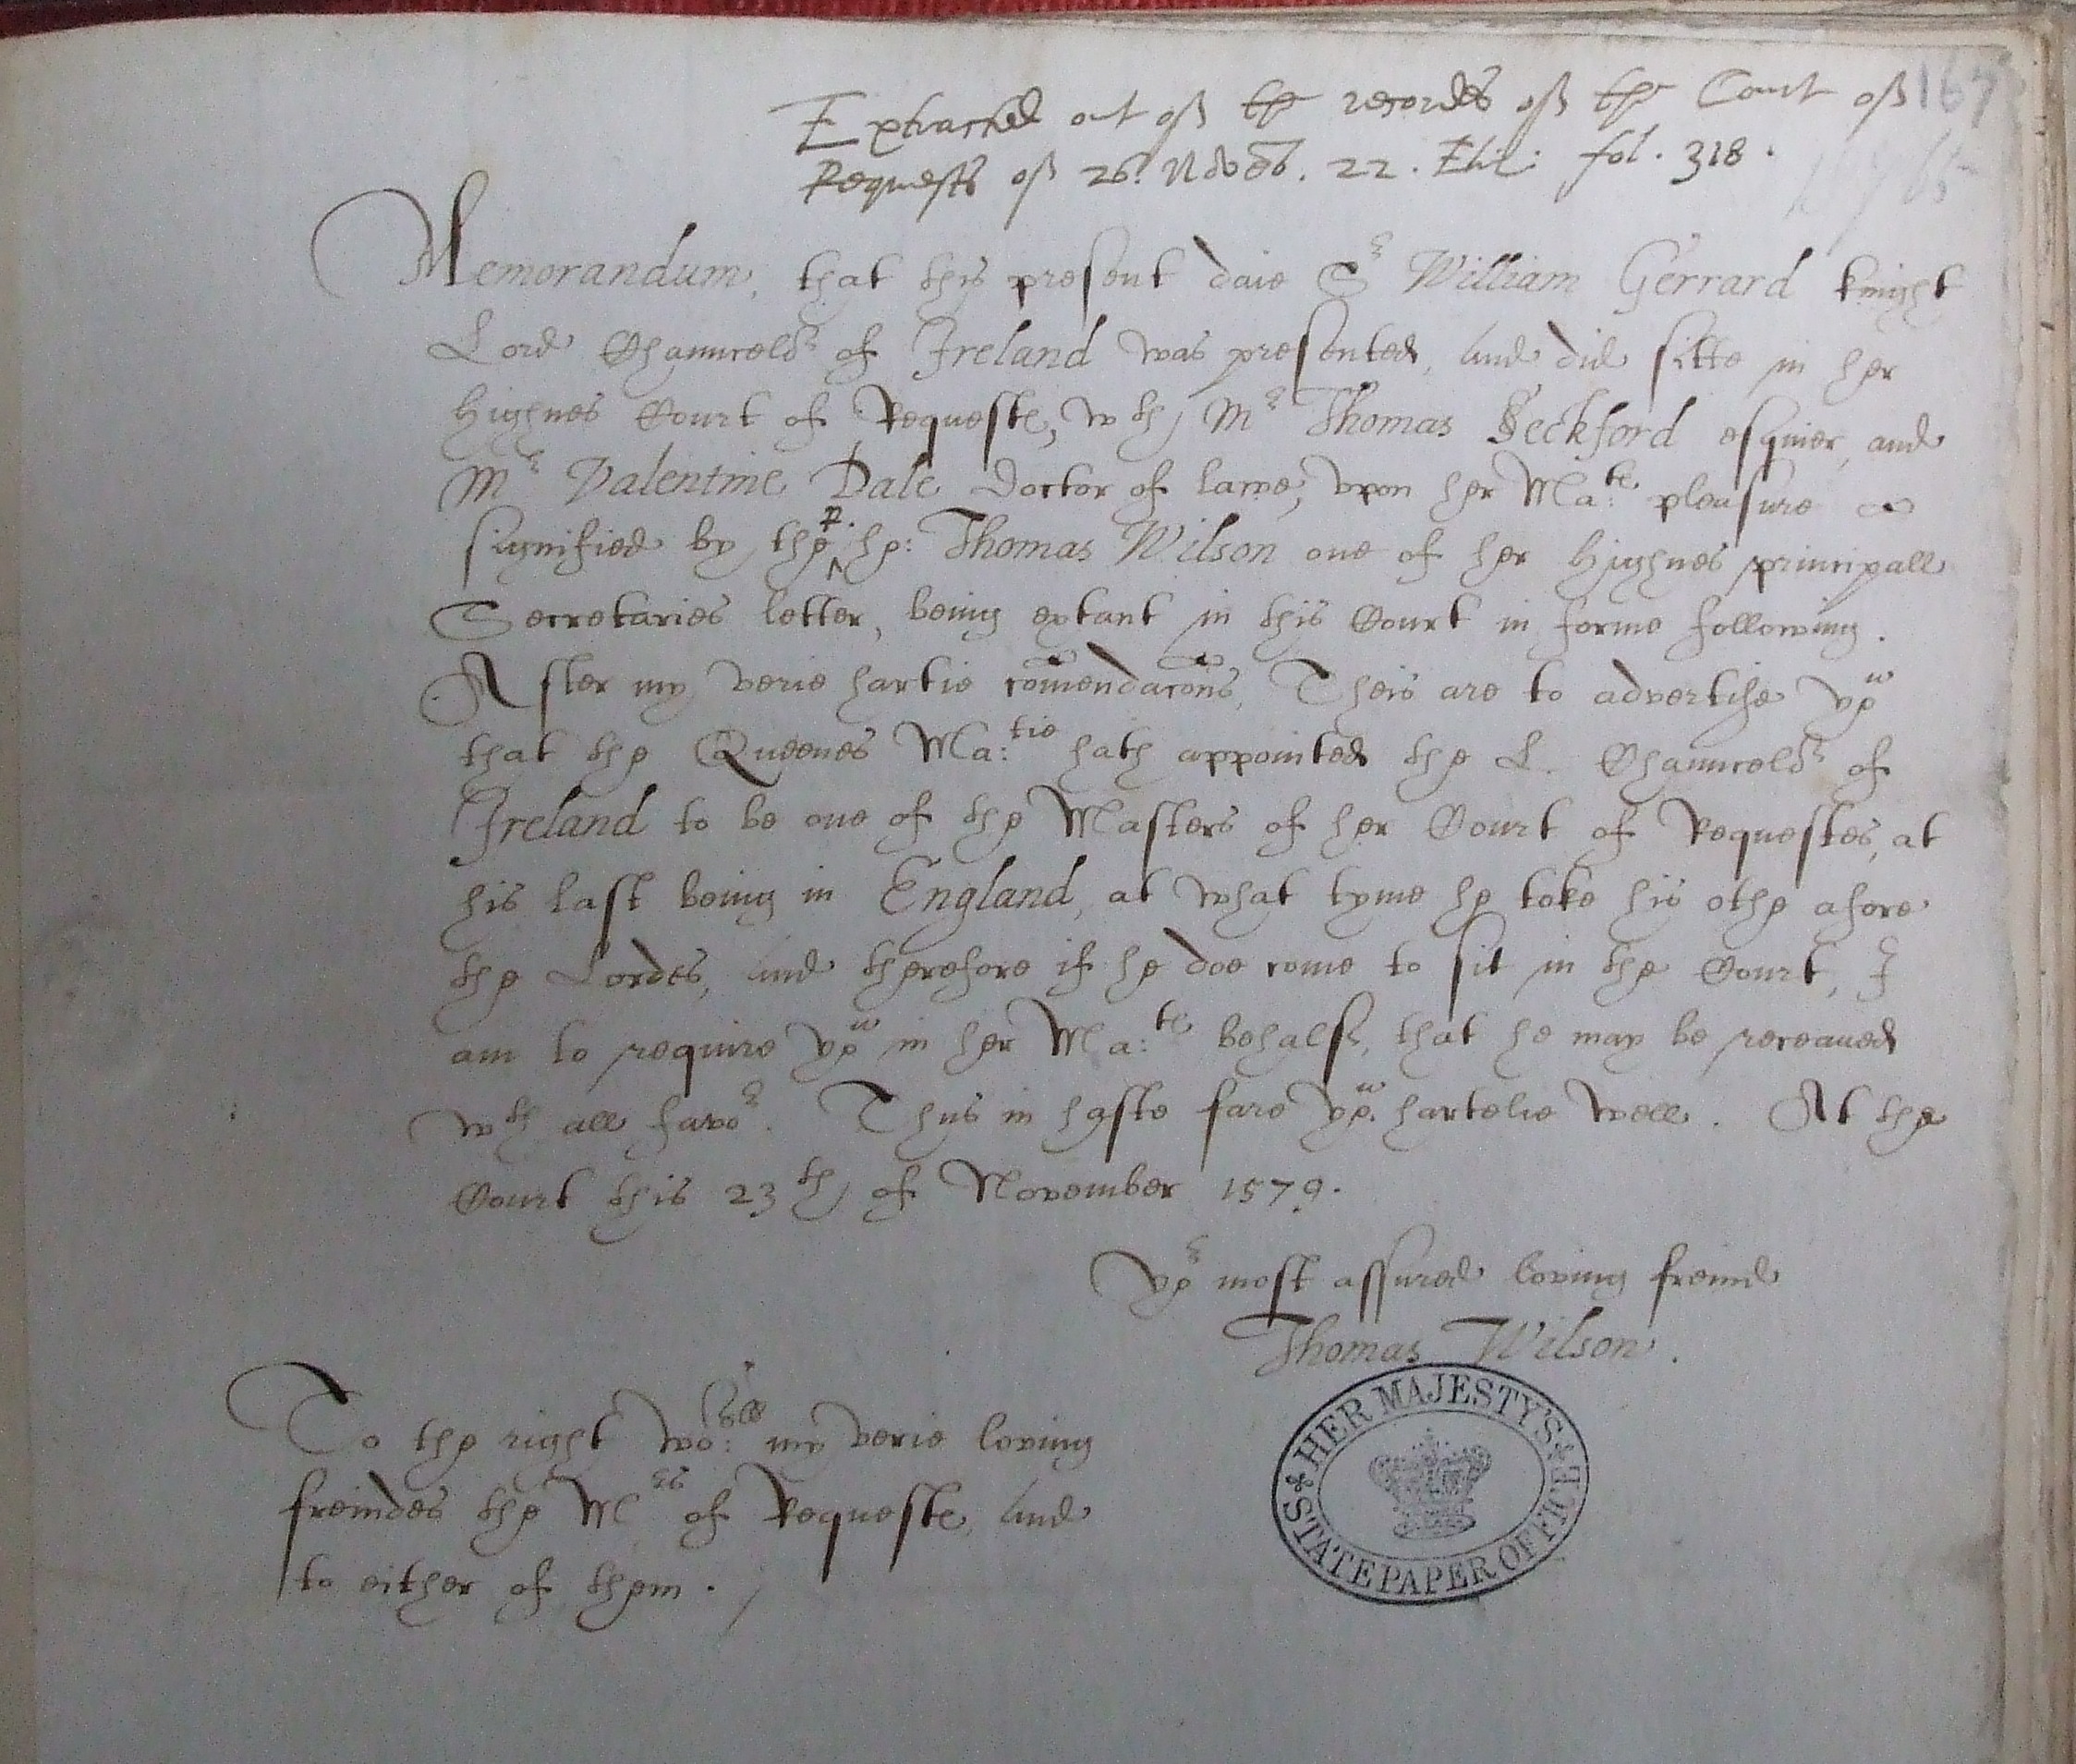 Extracted out off the recordes off the Court off
Requests off 26. Novēb. 22. Eliz: fol. 318.
167
Memorandum, that this present daie Sr William Gerrard knight
Lord Chauncelor of Ireland was presented, and did sitte in her
Highnes Court of Requestes, wth Mr Thomas Seckford esquier, and
Mr Valentine Dale Doctor of lawe, vpon her Ma:tes pleasure
signified by the R. ho: Thomas Wilson one of her Highnes principall
Secretaries letter, being extant in this Court in forme following.
After my verie hartie com̄endacōns, Theis are to advertise yow
that the Queenes Ma:tie hath appointed the L. Chauncelor of
Ireland to be one of the Masters of her Court of Requestes, at
his last being in England, at what tyme he toke his othe afore
the Lordes, and therefore if he doe come to sit in the Court, I
am to require yow in her Ma:tes behalf, that he may be receaued
wth all favor. Thus in haste fare yow hartelie well. At the
Court this 23th of November 1579.
Yor most assured loving freind
Thomas Wilson.
To the right wo:shll my verie loving
freindes the Mrs of Requestes, and
to either of them.
HER MAJESTY'S STATE PAPER OFFICE